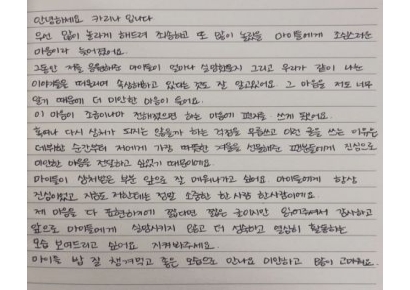 안녕하세요 카리나 입니다
우선 많이 놀라게 해드려 죄송하고 또 많이 놀랐을 마이들에게 조심스러운
마음이라 늦어졌어요.
그동안 저를 응원해준 마이들이 얼마나 실망했을지 그리고 우리가 같이 나눈
이야기들을 떠올리며 속상해하고 있다는 것도 잘 알고있어요 그 마음을 저도 너무
알기 때문에 더 미안한 마음이 들어요.
이 마음이 조금이나마 전해졌으면 하는 마음에 편지를 쓰게 됐어요.
혹여나 다시 상처가 되지는 않을까 하는 걱정을 무릅쓰고 이런 글을 쓰는 이유는
데뷔한 순간부터 저에게 가장 따뜻한 겨울을 선물해준 팬분들에게 진심으로
미안한 마음을 전달하고 싶었기 때문이에요.
마이들이 상처받은 부분 앞으로 잘 메워나가고 싶어요 마이들에게 항상
진심이었고 지금도 저한테는 정말 소중한 한사람 한사람이에요
제 마음을 다 표현하기에 짧다면 짧은 글이지만 읽어주셔서 감사하고
앞으로 마이들에게 실망시키지 않고 더 성숙하고 열심히 활동하는
모습 보여드리고 싶어요 지켜봐주세요.
마이들 밥 잘 챙겨먹고 좋은 모습으로 만나요 미안하고 많이 고마워요.